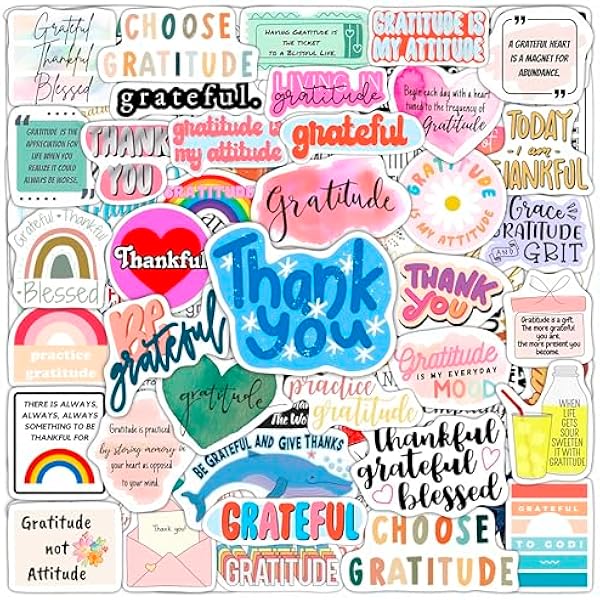 Grateful
Thankful
Blessed
CHOOSE
GRATITUDE
HAVING GRATITUDE IS
THE TICKET
TO A BLISSFUL LIFE.
GRATITUDE IS
MY ATTITUDE
A GRATEFUL HEART
IS A MAGNET FOR
ABUNDANCE.
grateful.
LIVING IN
gratitude
Begin each day with a heart
tuned to the frequency of
Gratitude
GRATITUDE IS THE
APPRECIATION FOR
LIFE WHEN YOU
REALIZE IT COULD
ALWAYS BE WORSE.
THANK
YOU
gratitude is
my attitude
grateful
TODAY
I am
THANKFUL
GRATITUDE
Gratitude
GRATITUDE
IS MY ATTITUDE
Grace
GRATITUDE
AND GRIT
Grateful • Thankful
• Blessed
Thankful
Thank
you
THANK
YOU
Gratitude is a gift.
The more grateful
you are,
the more present you
become.
practice
gratitude
Be
grateful
Gratitude
IS MY EVERYDAY
MOOD
gratitude
practice
gratitude
WHEN
LIFE
GETS
SOUR
SWEETEN
IT WITH
GRATITUDE
THERE IS ALWAYS,
ALWAYS, ALWAYS
SOMETHING TO BE
THANKFUL FOR
Gratitude is practiced
by storing memory in
your heart as opposed
to your mind.
BE GRATEFUL AND GIVE THANKS
thankful
grateful
blessed
Gratitude
not
Attitude
Thank you!
GRATEFUL
GRATITUDE
CHOOSE
GRATITUDE
GRATEFUL
TO GOD!